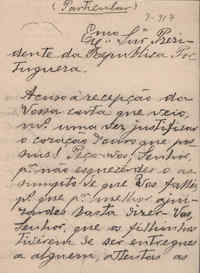 (Particular)
7-917
Exmo Snr. Presi-
dente da Republica Por-
tuguesa.
Acuso a recepção da
Vossa carta que veio
mais uma vez justificar
o coração d'ouro que pos-
suis! Peço-vos, Senhor,
p.a não esquecerdes o as-
sumpto de que vos fallei,
p.a que melhor
basta dizer-vos,
Senhor, que os filhinhos
tiverem de ser entregues
a alguem, attentas as